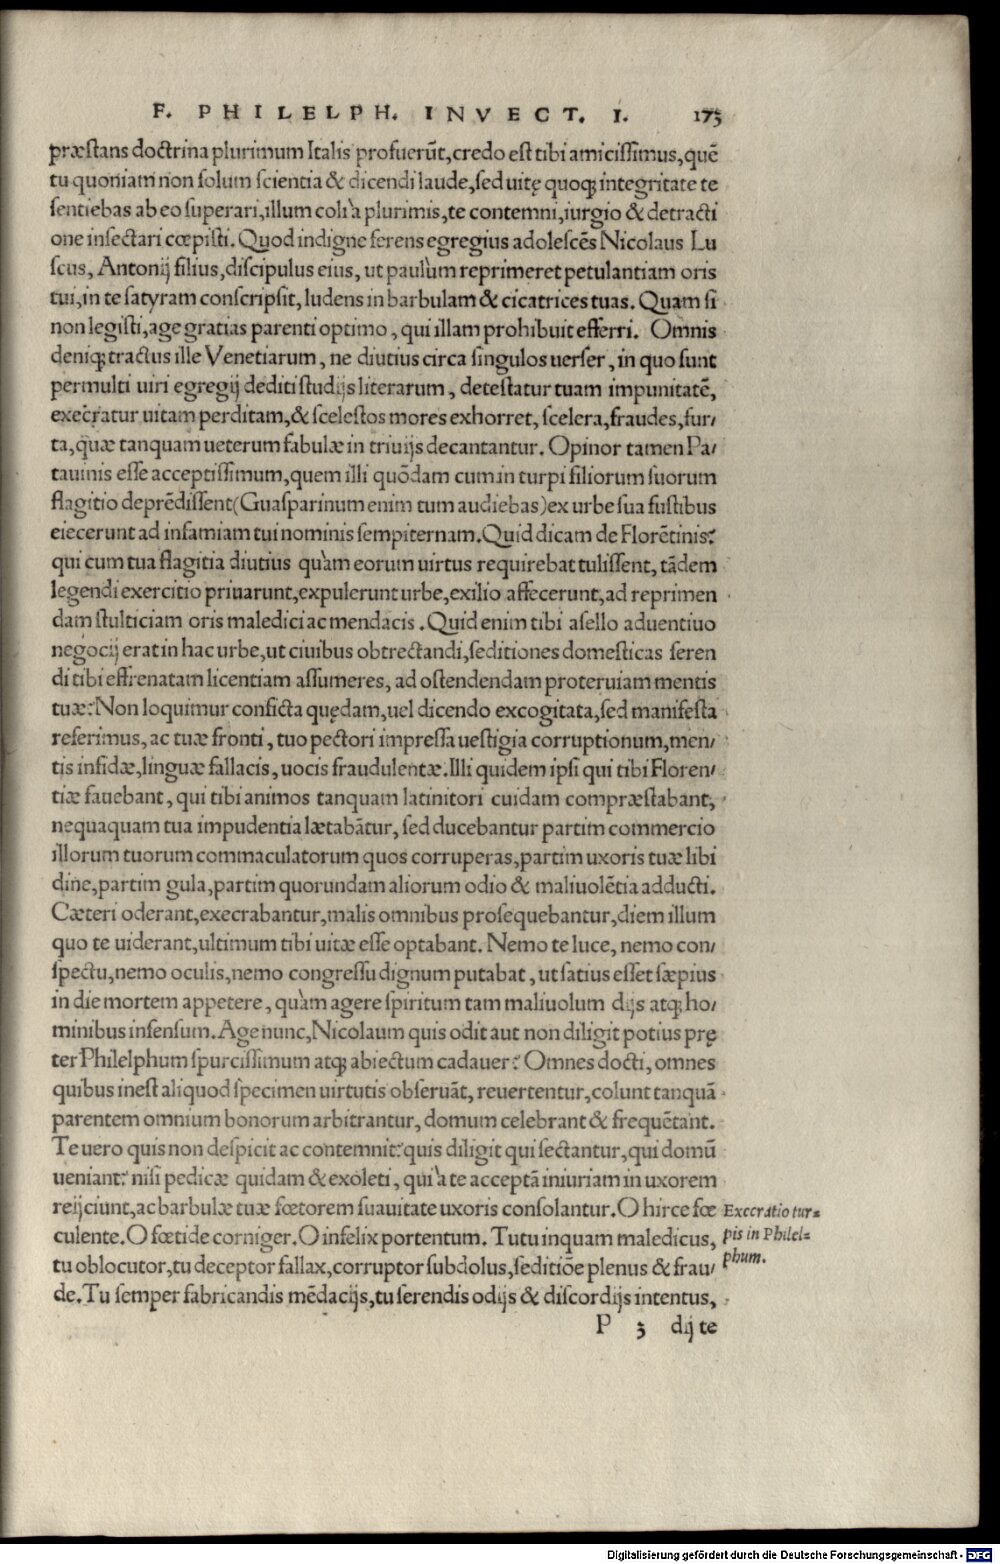 F. PHILELPH. INVECT. I. 173
præstans doctrina plurimum Italis profuerūt, credo est tibi amicissimus, quē
tu quoniam non solum scientia & dicendi laude, sed uitę quoqꝫ integritate te
sentiebas ab eo superari, illum coli à plurimis, te contemni, iurgio & detracti
one insectari cœpisti. Quod indigne ferens egregius adolescēs Nicolaus Lu
scus, Antonij filius, discipulus eius, ut paulùm reprimeret petulantiam oris
tui, in te satyram conscripsit, ludens in barbulam & cicatrices tuas. Quam si
non legisti, age gratias parenti optimo, qui illam prohibuit efferri. Omnis
deniqꝫ tractus ille Venetiarum, ne diutius circa singulos uerser, in quo sunt
permulti uiri egregij dediti studijs literarum, detestatur tuam impunitatē,
execratur uitam perditam, & scelestos mores exhorret, scelera, fraudes, fur/
ta, quæ tanquam ueterum fabulæ in triuijs decantantur. Opinor tamen Pa/
tauinis esse acceptissimum, quem illi quōdam cum in turpi filiorum suorum
flagitio deprēdissent (Guasparinum enim tum audiebas) ex urbe sua fustibus
eiecerunt ad infamiam tui nominis sempiternam. Quid dicam de Florētinis?
qui cum tua flagitia diutius quàm eorum uirtus requirebat tulissent, tādem
legendi exercitio priuarunt, expulerunt urbe, exilio affecerunt, ad reprimen
dam stulticiam oris maledici ac mendacis. Quid enim tibi asello aduentiuo
negocij erat in hac urbe, ut ciuibus obtrectandi, seditiones domesticas seren
di tibi effrenatam licentiam assumeres, ad ostendendam proteruiam mentis
tuæ? Non loquimur conficta quędam, uel dicendo excogitata, sed manifesta
referimus, ac tuæ fronti, tuo pectori impressa uestigia corruptionum, men/
tis infidæ, linguæ fallacis, uocis fraudulentæ. Illi quidem ipsi qui tibi Floren/
tiæ fauebant, qui tibi animos tanquam latinitori cuidam compræstabant,
nequaquam tua impudentia lætabātur, sed ducebantur partim commercio
illorum tuorum commaculatorum quos corruperas, partim uxoris tuæ libi
dine, partim gula, partim quorundam aliorum odio & maliuolētia adducti.
Cæteri oderant, execrabantur, malis omnibus prosequebantur, diem illum
quo te uiderant, ultimum tibi uitæ esse optabant. Nemo te luce, nemo con/
spectu, nemo oculis, nemo congressu dignum putabat, ut satius esset sæpius
in die mortem appetere, quàm agere spiritum tam maliuolum dijs atqꝫ ho/
minibus infensum. Age nunc, Nicolaum quis odit aut non diligit potius prę
ter Philelphum spurcissimum atqꝫ abiectum cadauer? Omnes docti, omnes
quibus inest aliquod specimen uirtutis obseruāt, reuertentur, colunt tanquā
parentem omnium bonorum arbitrantur, domum celebrant & frequētant.
Te uero quis non despicit ac contemnit? quis diligit qui sectantur, qui domū
ueniant? nisi pedicæ quidam & exoleti, qui à te acceptā iniuriam in uxorem
reijciunt, ac barbulæ tuæ fœtorem suauitate uxoris consolantur. O hirce fœ
culente. O fœtide corniger. O infelix portentum. Tu tu inquam maledicus,
tu oblocutor, tu deceptor fallax, corruptor subdolus, seditiōe plenus & frau/
de. Tu semper fabricandis mēdacijs, tu serendis odijs & discordijs intentus,
P 3 dij te
Execratio tur=
pis in Philel=
phum.
Digitalisierung gefördert durch die Deutsche Forschungsgemeinschaft - DFG